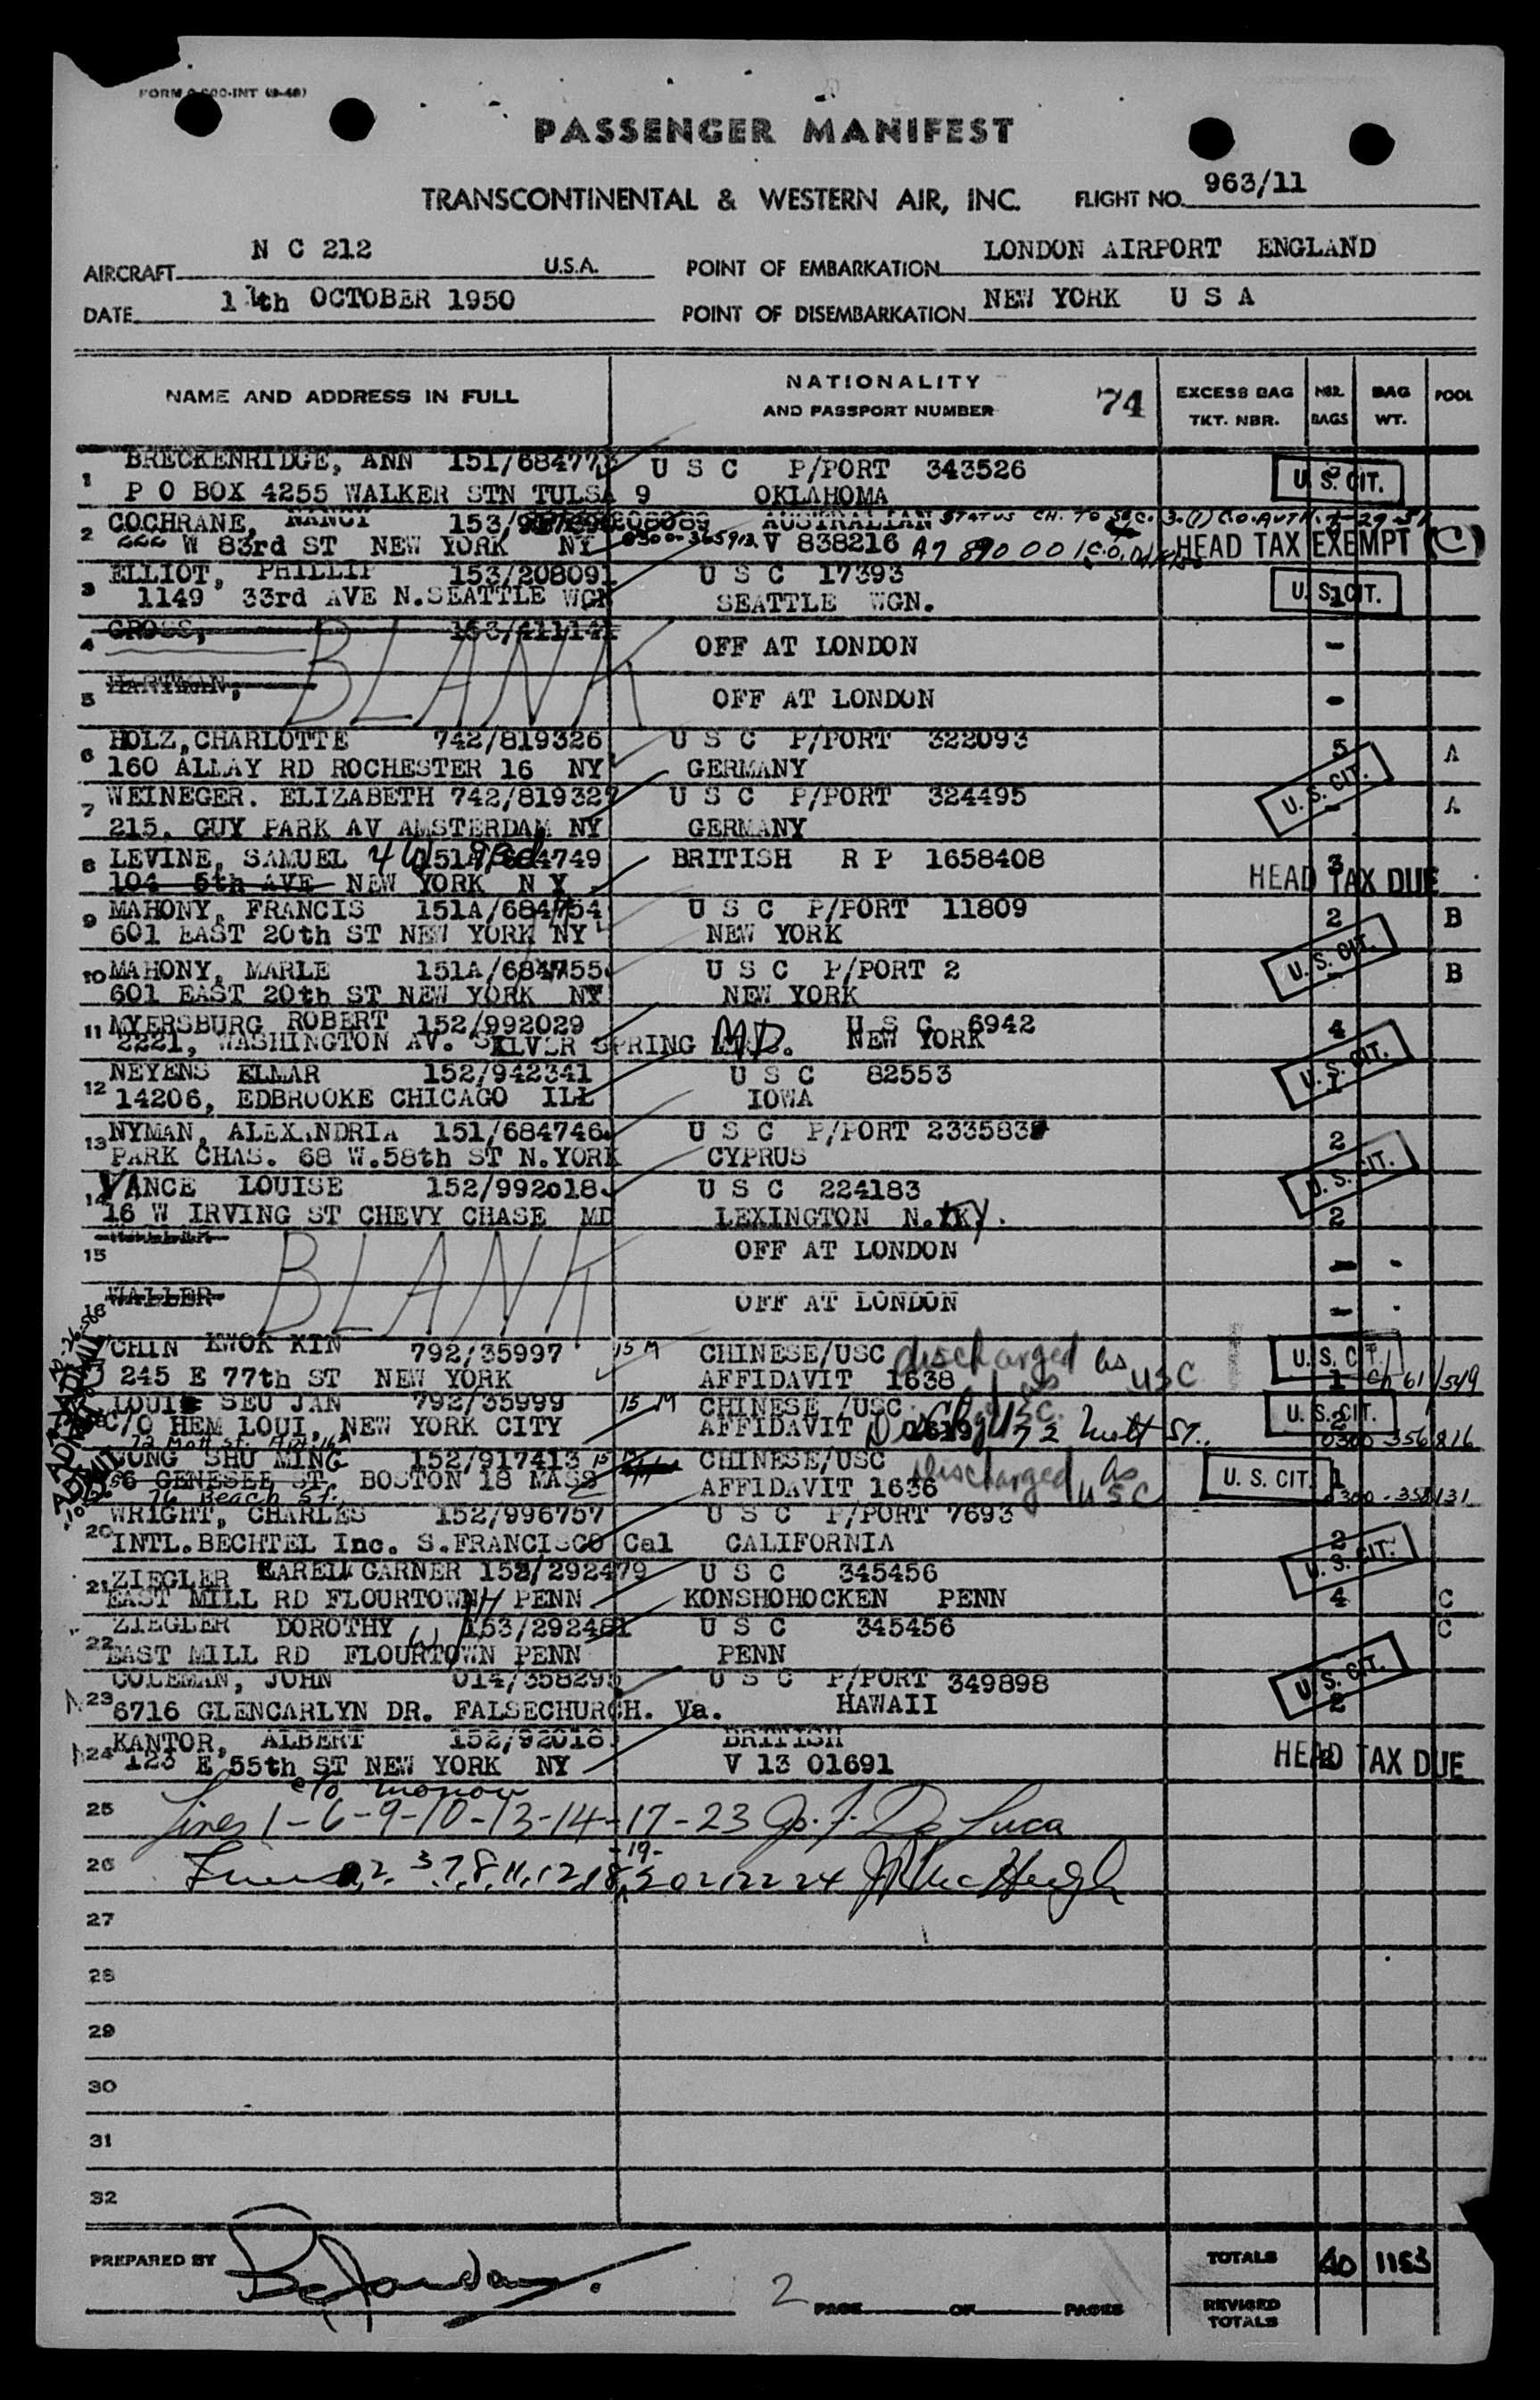 FORM -INT (9-48)
PASSENGER MANIFEST
TRANSCONTINENTAL & WESTERN AIR, INC. FLIGHT NO. 963/11
AIRCRAFT N C 212 U.S.A. POINT OF EMBARKATION LONDON AIRPORT ENGLAND
DATE 11th OCTOBER 1950 POINT OF DISEMBARKATION NEW YORK U S A
NAME AND ADDRESS IN FULL NATIONALITY AND PASSPORT NUMBER 74 EXCESS BAG TKT. NBR. NBR. BAGS BAG WT. POOL
1 BRECKENRIDGE, ANN 151/684773 U S C P/PORT 343526 U. S. CIT.
P O BOX 4255 WALKER STN TULSA 9 OKLAHOMA
2 COCHRANE, NANCY 153/ AUSTRALIAN STATUS CH. TO SEC. 3.(1) C.O. AUTH.
222 W 83rd ST NEW YORK NY 0300-365912 V 838216 A7 890 001 HEAD TAX EXEMPT (C)
3 ELLIOT, PHILLIP 153/208091 U S C 17393 U. S. CIT. 1
1149 33rd AVE N. SEATTLE WGN SEATTLE WGN.
4 GROSS, 153/411141 BLANK OFF AT LONDON -
5 HARTMAN, OFF AT LONDON -
6 HOLZ, CHARLOTTE 742/819326 U S C P/PORT 322093 5 A
160 ALLAY RD ROCHESTER 16 NY GERMANY U. S. CIT.
7 WEINEGER. ELIZABETH 742/819327 U S C P/PORT 324495 - A
215. GUY PARK AV AMSTERDAM NY GERMANY
8 LEVINE, SAMUEL 151A/684749 BRITISH R P 1658408 3
104 5th AVE NEW YORK N Y HEAD TAX DUE
9 MAHONY, FRANCIS 151A/684754 U S C P/PORT 11809 2 B
601 EAST 20th ST NEW YORK NY NEW YORK U. S. CIT.
10 MAHONY, MARLE 151A/684755 U S C P/PORT 2 - B
601 EAST 20th ST NEW YORK NY NEW YORK
11 MYERSBURG ROBERT 152/992029 U S C 6942 4
2221, WASHINGTON AV. SILVER SPRING MD. NEW YORK U. S. CIT.
12 NEYENS ELMAR 152/942341 U S C 82553 1
14206, EDBROOKE CHICAGO ILL IOWA
13 NYMAN, ALEXANDRIA 151/684746 U S C P/PORT 233583 2
PARK CHAS. 68 W.58th ST N.YORK CYPRUS U. S. CIT.
14 VANCE LOUISE 152/992018 U S C 224183
16 W IRVING ST CHEVY CHASE MD LEXINGTON KY. 2
15 BLANK OFF AT LONDON -
16 WALLER OFF AT LONDON -
CHIN KWOK KIN 792/35997 15 M CHINESE/USC discharged as USC U. S. CIT.
245 E 77th ST NEW YORK AFFIDAVIT 1638 1 Ch 61/549
LOUIE SEU JAN 792/35999 15 M CHINESE /USC U. S. CIT. 2
C/O HEM LOUI, NEW YORK CITY AFFIDAVIT 1619 72 Mott St. 0300-356816
72 Mott St. Apt 16
WONG SHU MING 152/917413 15 CHINESE/USC Discharged as USC U. S. CIT. 1
56 GENESEE ST. BOSTON 18 MASS AFFIDAVIT 1636 0300-358131
76 Beach St.
20 WRIGHT, CHARLES 152/996757 U S C P/PORT 7693 2
INTL.BECHTEL Inc. S.FRANCISCO Cal CALIFORNIA U. S. CIT.
21 ZIEGLER CARELL GARNER 153/292479 U S C 345456
EAST MILL RD FLOURTOWN PENN KONSHOHOCKEN PENN 4 C
22 ZIEGLER DOROTHY W 153/292481 U S C 345456 C
EAST MILL RD FLOURTOWN PENN PENN
23 COLEMAN, JOHN 014/358295 U S C P/PORT 349898 U. S. CIT.
6716 GLENCARLYN DR. FALSECHURCH. Va. HAWAII 2
24 KANTOR, ALBERT 152/92018 BRITISH
123 E 55th ST NEW YORK NY V 13 01691 HEAD TAX DUE
25 Lines 1-6-9-10-13-14-17-23 Jos. F. De Luca
26 Lines 2. 3 7, 8, 11, 12, 18, -19- 20 21 22 24 J McHugh
27
28
29
30
31
32
PREPARED BY TOTALS 40 1153
2 PAGE OF PAGES REVISED TOTALS